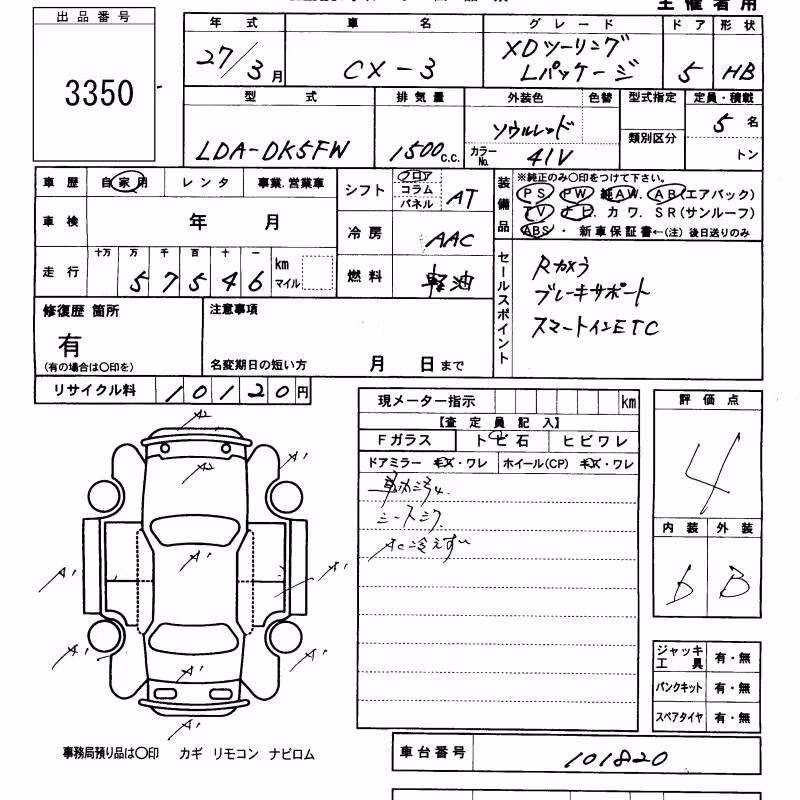 主催者用
出品番号
3350
年式 車名 グレード ドア 形状
27/3月 CX-3 XDツーリング Lパッケージ 5 HB
型式 排気量 外装色 色替 型式指定 定員・積載
LDA-DK5FW 1500c.c. ソウルレッド 5名
カラーNo. 41V 類別区分 トン
車歴 自家用 レンタ 事業.営業車
シフト フロア コラム パネル AT
装備品
※純正のみ〇印をつけて下さい。
PS PW 純AW. AB(エアバック)
TV ナビ. カワ. SR(サンルーフ)
ABS ・ 新車保証書←(注) 後日送りのみ
車検 年 月
冷房 AAC
走行 十万 万 千 百 十 一
57546 km マイル
燃料 軽油
セールスポイント
Rカメラ
ブレーキサポート
スマートインETC
修復歴 箇所
有
(有の場合は〇印を)
注意事項
名変期日の短い方 月 日まで
リサイクル料 10120円
現メーター指示 km
【査定員記入】
Fガラス トビ石 ヒビワレ
ドアミラー キズ・ワレ ホイール(CP) キズ・ワレ
シートシワ
AC冷えずい
評価点
4
内装 外装
b B
ジャッキ工具 有・無
パンクキット 有・無
スペアタイヤ 有・無
A2
A1
A2
A1
A1
A1
A1
A1
A1
A1
A1
A1
事務局預り品は〇印 カギ リモコン ナビロム
車台番号 101820